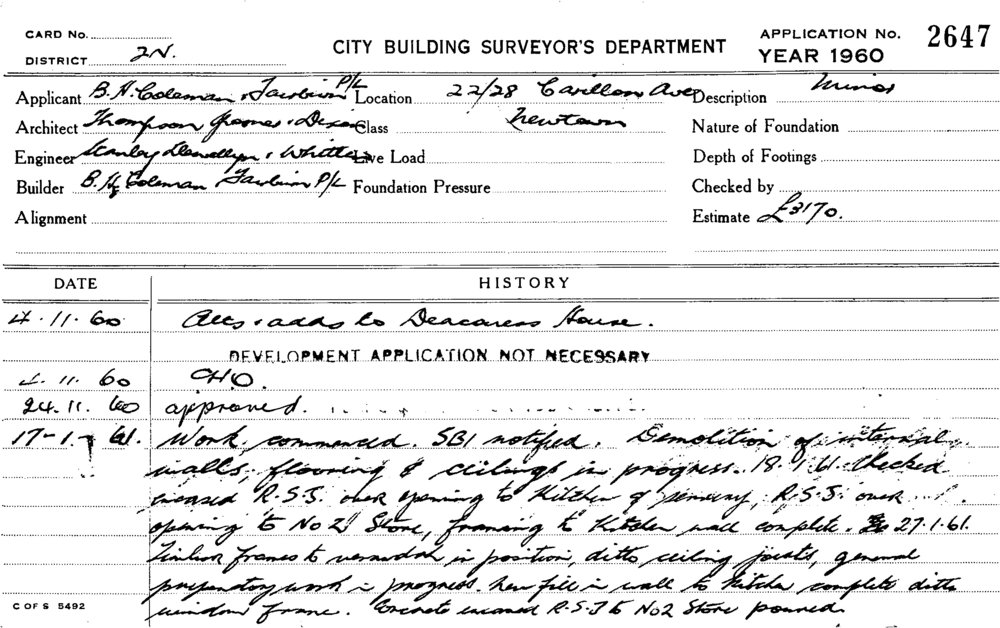 CARD No. APPLICATION No. 2647
DISTRICT 2N. CITY BUILDING SURVEYOR'S DEPARTMENT YEAR 1960
Applicant B. H. Coleman P/L Location 22/28 Carillon Ave Description Minor
Architect Thompson Class Newtown Nature of Foundation
Engineer Stanley Llewellyn Live Load Depth of Footings
Builder B. H. Coleman P/L Foundation Pressure Checked by
Alignment Estimate £3170.
DATE HISTORY
4.11.60 Alts & adds to Deaconess House.
DEVELOPMENT APPLICATION NOT NECESSARY
4.11.60 CHO.
24.11.60 approved.
17-1-61. Work commenced. SBI notified. Demolition of internal
walls, flooring & ceilings in progress. 18.1.61 Checked
encased R.S.J. over opening to Kitchen & servery, R.S.J. over
opening to No 2 Store, framing to Kitchen wall complete. 27.1.61.
Timber frames to verandah in position, ditto ceiling joists, general
preparatory work in progress. New fill in wall to Kitchen complete ditto
window frame. Concrete encased R.S.J to No2 Store poured.
C OF S 5492